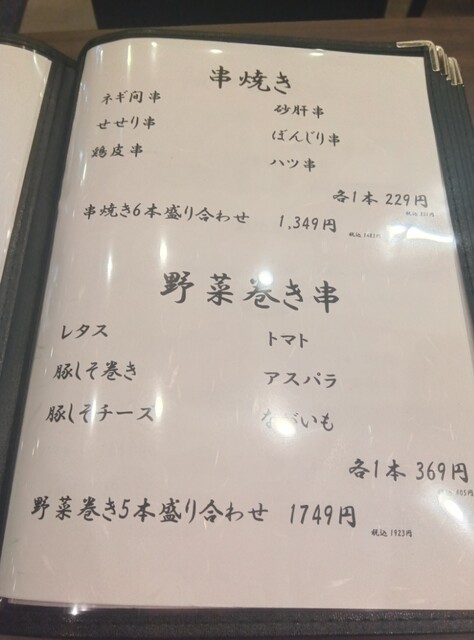 串焼き
ネギ間串
砂肝串
せせり串
ぼんじり串
鶏皮串
ハツ串
各1本 229円
串焼き6本盛り合わせ 1,349円
野菜巻き串
レタス
トマト
豚しそ巻き
アスパラ
豚しそチーズ
ながいも
各1本 369円
野菜巻き5本盛り合わせ 1749円
税込 1923円